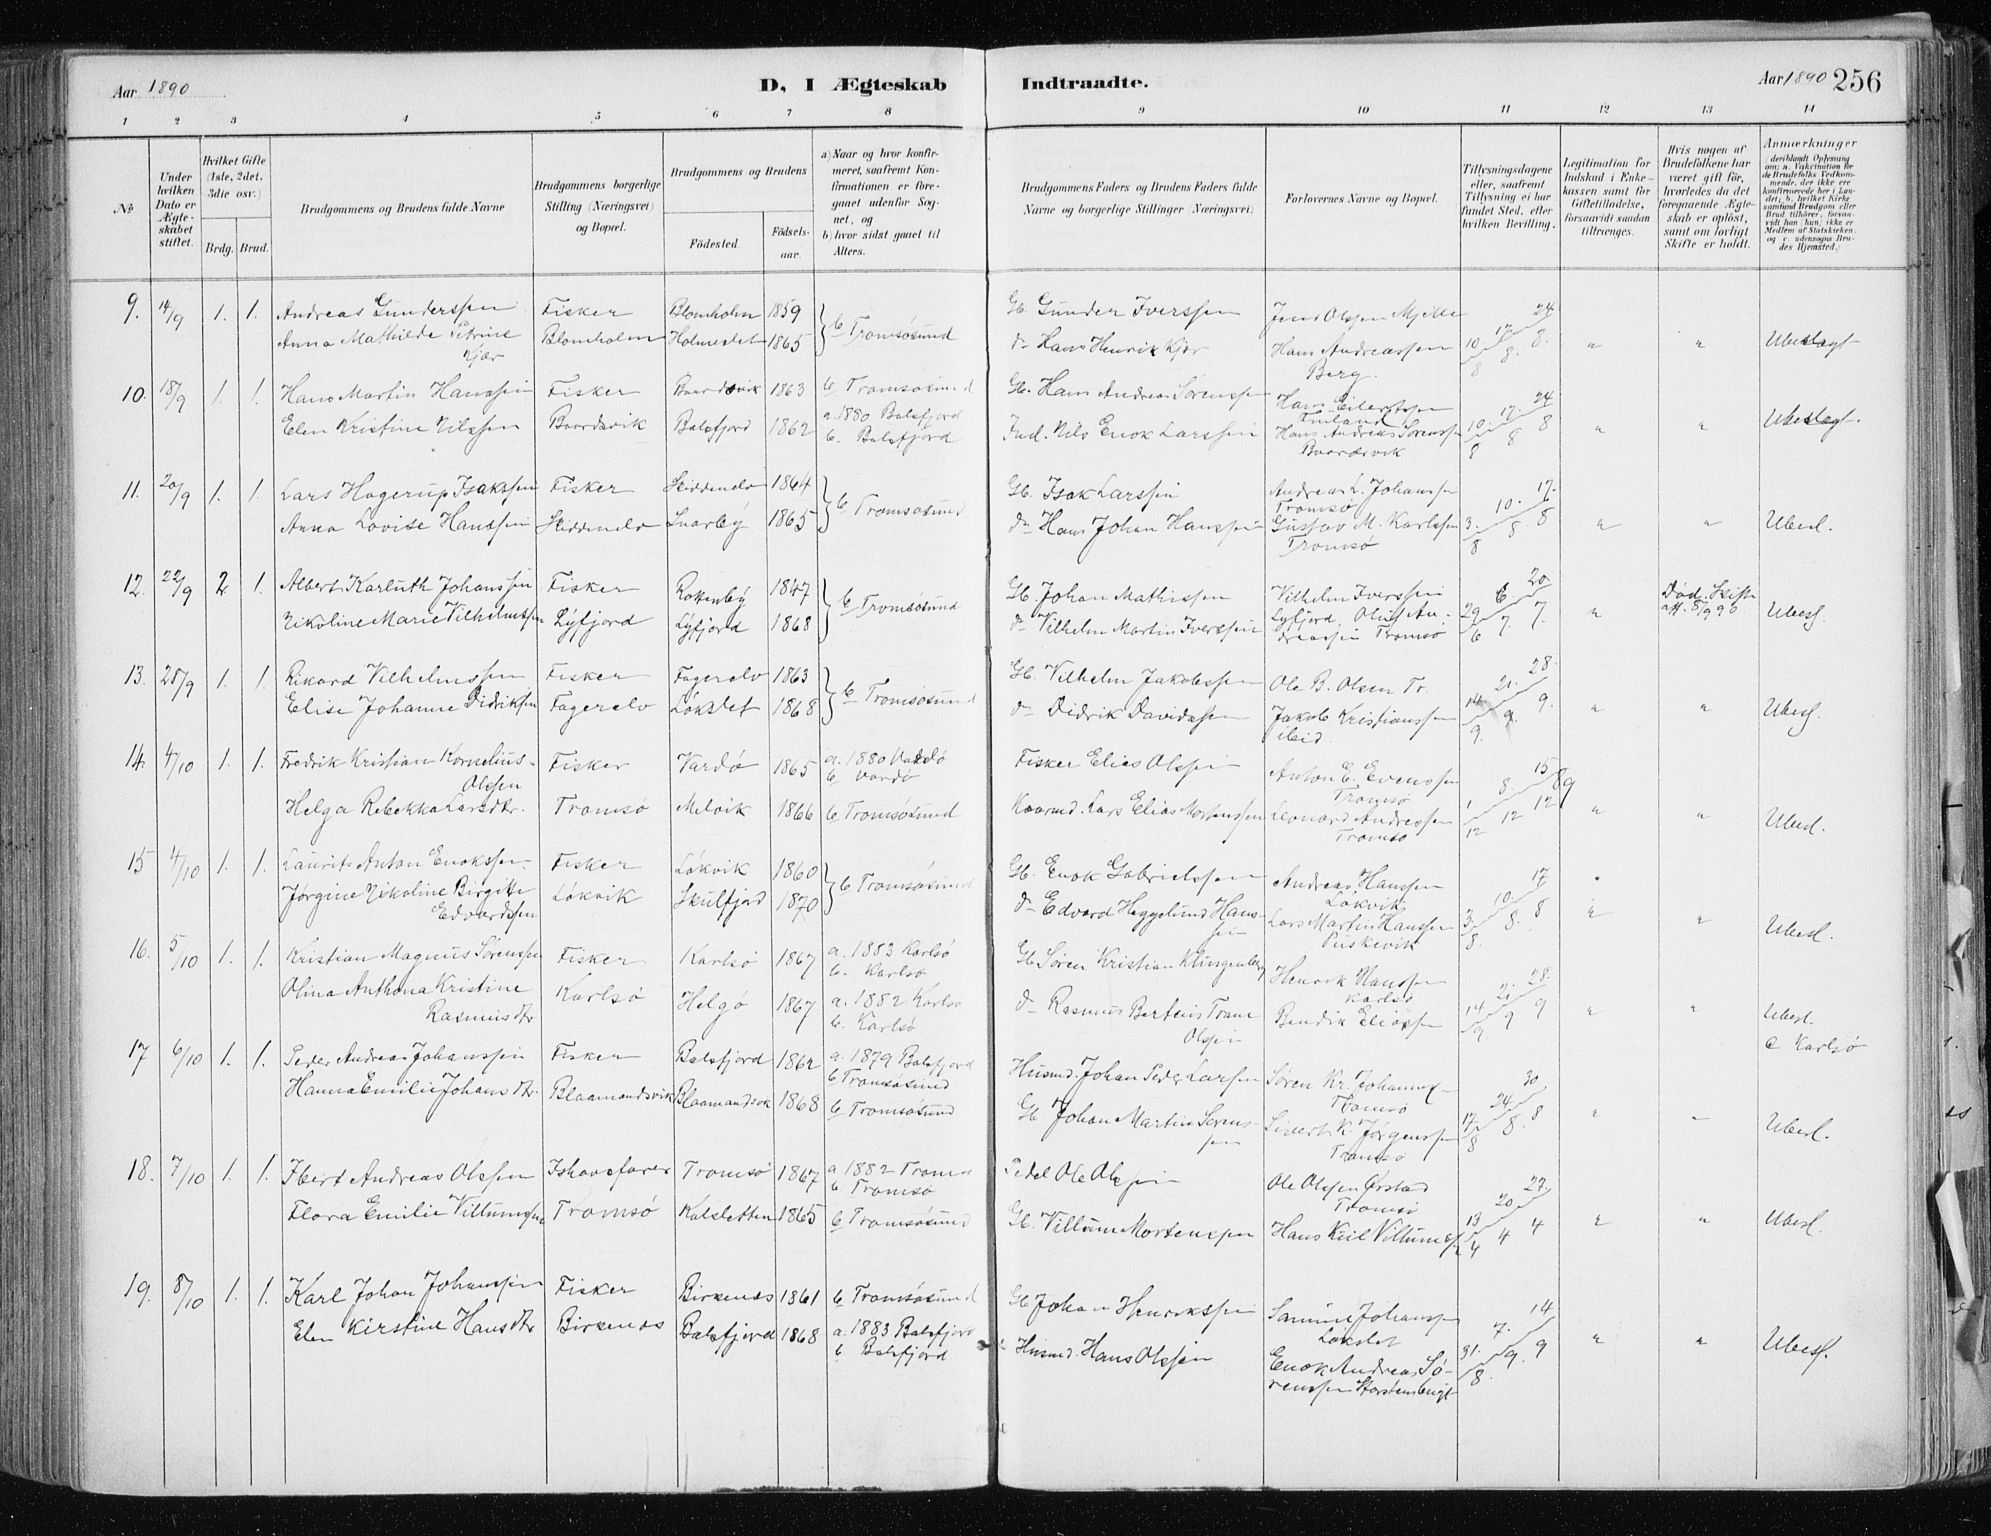 Aar 1890 D, I Ægteskab Indtraadte. Aar 1890 256
1 2 3 4 5 6 7 8 9 10 11 12 13 14
№
Under hvilken Dato er Ægteskabet stiftet.
Hvilket Gifte (1ste, 2det, 3die osv.)
Brdg. Brud.
Brudgommens og Brudens fulde Navne
Brudgommens borgerlige Stilling (Næringsvei) og Bopæl.
Brudgommens og Brudens
Födested. Födselsaar.
a) Naar og hvor konfirmeret, saafremt Konfirmationen er foregaaet udenfor Sognet, og
b) hvor sidst gaaet til Alters.
Brudgommens Faders og Brudens Faders fulde Navne og borgerlige Stillinger (Næringsvei)
Forlovernes Navne og Bopæl.
Tillysningsdagene eller, saafremt Tillysning ei har fundet Sted, efter hvilken Bevilling.
Legitimation for Indskud i Enkekassen samt for Giftetilladelse, forsaavidt saadan tiltrænges.
Hvis nogen af Brudefolkene har været gift för, hvorledes da det foregaaende Ægteskab er oplöst, samt om lovligt Skifte er holdt.
Anmærkninger
(deriblandt Oplysning om: a. Vakcination for de Brudefolks Vedkommende, der ikke ere konfirmerede her i Landet; b. hvilket Kirkesamfund Brudgom eller Brud tilhörer, forsaavidt han (hun) ikke er Medlem af Statskirken, og c. udensogns Brudes Hjemsted.)
9. 14/9 1. 1. Andreas Gunderssen Fisker Blomholm 1859 b Tromsøsund Gb. Gunder Iverssen Jens Olssen Mjelle 10/8 17/8 24/8
Anna Mathilde Petrine Kjær Blomholm Holmeslet 1865 do Hans Henrik Kjær Hans Andreassen Berg. " " Ubeslagt
10. 18/9 1. 1. Hans Martin Hanssen Fisker Baardsvik 1863 b Tromsøsund Gb. Hans Andreas Sørenssen Hans Eilertssen Finland 10/8 17/8 24/8
Elen Kristine Nilssen Baardsvik Balsfjord 1862 a. 1880 Balsfjord b. Balsfjord Ind. Nils Enok Larssen Hans Andreas Sørenssen " " Ubeslagt.
11. 20/9 1. 1. Lars Hagerup Isakssen Fisker Skiddenelv 1864 b Tromsøsund Gb. Isak Larssen Andreas L. Johanssen Tromsø 3/8 10/8 17/8
Anna Lovise Hanssen Skiddenelv Snarby 1865 do Hans Johan Hanssen Gustav M. Karlssen Tromsø " " Ubesl.
12. 22/9 2 1. Albert Karluth Johanssen Fisker Rottenby 1847 b Tromsøsund Gb. Johan Mathissen Vilhelm Iverssen 29/6 6/7 20/7 Død. Skifte
Nikoline Marie Vilhelmssen Lyfjord Lyfjord 1868 do Vilhelm Martin Iverssen Lyfjord. Oluf Andreassen Tromsø " Ubesl.
13. 28/9 1. 1. Rikard Vilhelmssen Fisker Fagerelv 1863 b Tromsøsund Gb. Vilhelm Jakobssen Ole B. Olsen Tr. 14/9 21/9 28/9
Elise Johanne Didriksen Fagerelv Løkslet 1868 do Didrik Davidssen Jakob Kristianssen Eid. " " Ubesl.
14. 4/10 1. 1. Fredrik Kristian Kornelius Olssen Fisker Vardø 1865 a. 1880 Vadsø b Vardø Fisker Elias Olssen Anton E. Evenssen Tromsø 1/12 8/12 15/12 89
Helga Rebekka Larsdtr. Tromsø Melvik 1866 b Tromsøsund Kaarmd. Lars Elias Mortenssen Leonard Andreassen Tromsø " " Ubesl.
15 4/10 1. 1. Laurits Anton Enokssen Fisker Løkvik 1860 b Tromsøsund Gb. Enok Gabrielssen Andreas Hanssen Løkvik 3/8 10/8 17/8
Jørgine Nikoline Birgitte Edvardssen Løkvik Skulfjord 1870 do Edvard Heggelund Hanssen Lars Martin Hanssen " " Ubesl.
16. 5/10 1. 1. Kristian Magnus Sørenssen Fisker Karlsø 1867 a. 1883 Karlsø b. Karlsø Gb Søren Kristian Klingenberg Henrik Hanssen Karlsø 14/9 21/9 28/9
Olina Anthona Kristine Rasmusdtr Karlsø Helgø 1867 a. 1882 Karlsø b. Karlsø do Rasmus Berteus Trane Olssen Bendik Eliassen " " Ubesl. c Karlsø
17 6/10 1. 1. Peder Andreas Johanssen Fisker Balsfjord 1862 a. 1879 Balsfjord b Tromsøsund Husmd. Johan Peder Larssen Søren Kr. Johannes- Tromsø 17/8 24/8 30/8
Hanna Emilie Johansdtr. Blaamandsvik Blaamandsvk 1868 b Tromsøsund Gb Johan Martin Sørenssen Sivert K. Jørgenssen Tromsø " " Ubesl.
18. 7/10 1. 1. Hert Andreas Olssen Ishavsfarer Tromsø 1867 a 1882 Tromsø b Tromsø Pedel Ole Olssen Ole Olssen Ørstad Tromsø 13/4 20/4 27/4
Flora Emilie Villumssen Tromsø Kalsletten 1865 b Tromsøsund Gb. Villum Mortenssen Hans Kiil Villumss " " Ubesl.
19. 8/10 1. 1. Karl Johan Johanssen Fisker Birkenes 1861 b Tromsøsund Gb Johan Henrikssen Samuel Johanssen Løkslet 31/8 7/9 14/9
Elen Kirstine Hansdtr Birkenes Balsfjord 1868 a. 1883 Balsfjord b Balsfjord Husmd. Hans Olssen Enok Andreas Sørenssen " " Ubesl.